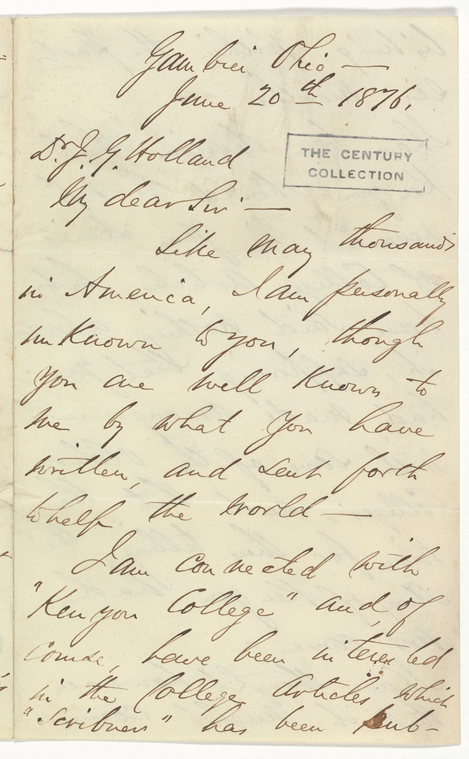 Gambier Ohio —
June 20th 1876.
Dr J. G. Holland
THE CENTURY
COLLECTION
My dear Sir —
Like many thousands
in America, I am personally
unknown to you, though
you are well known to
me by what you have
written, and sent forth
to help the world —
I am connected with
"Kenyon College" and of
course, have been interested
in the College Articles, which
"Scribners" has been pub-